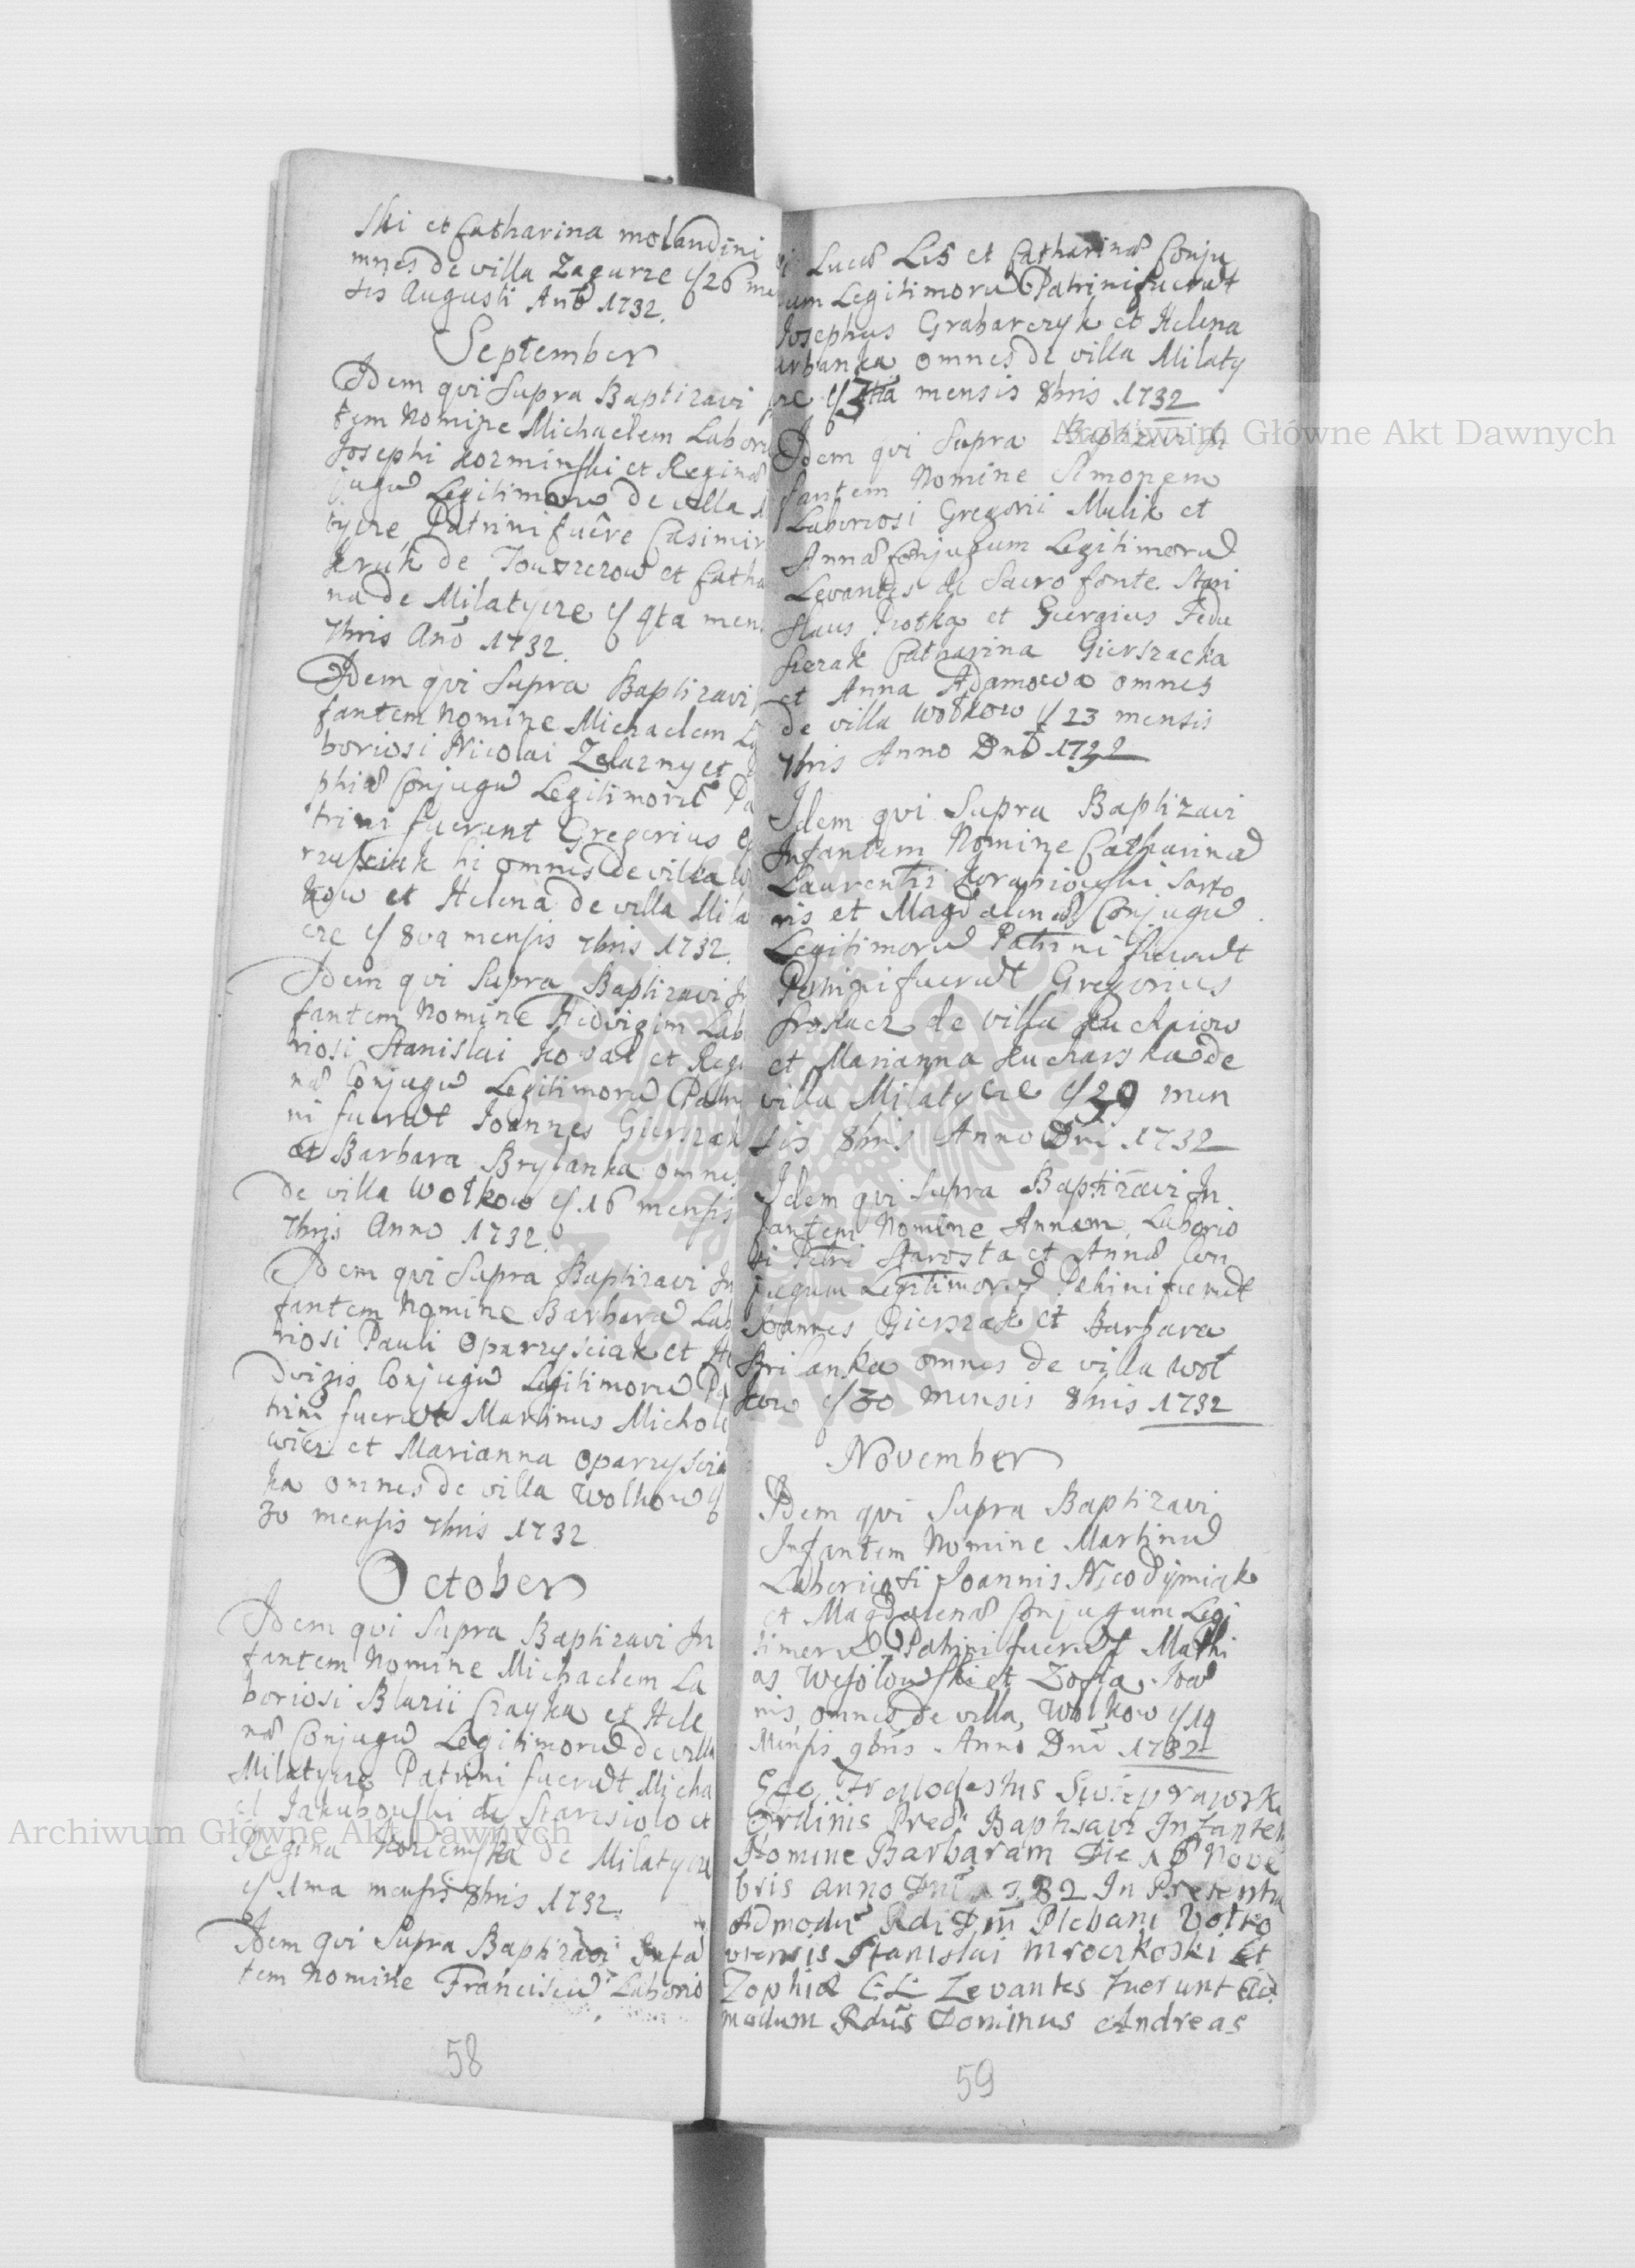 ski et Catharina molandini
mnes de villa Zagurze d 26 me
sis Augusti Año 1732.
September
Idem qui Supra Baptizavi
tem Nomine Michaelem Labori
Josephi Kozminski et Reginæ
jugū Legitimorū de villa
tycze Patrini fuêre Casimir
Kruk de Touszczow et Catha
na de Milatycze d 4ta men
7bris Anō 1732.
Idem qui Supra Baptizavi
fantem Nomine Michaelem La
boriosi Nicolai Zelazny et
phiæ Conjugū Legitimorū Pa
trini fuerunt Gregorius
hi omnes de villa W
kow et Helena de villa Mila
cze d 8va mensis 7bris 1732.
Idem qui Supra Baptizavi In
fantem Nomine Hedvigim Lab
riosi Stanislai Kowal et Regi
næ Conjugū Legitimorū Patri
ni fuerūt Joannes Gierszak
et Barbara Brylanka omnes
de villa Wołkow d 16 mensis
7bris Anno 1732.
Idem qui Supra Baptizavi In
fantem Nomine Barbarā Lab
riosi Pauli Oparzysciak et He
dvigis Conjugū Legitimorū Pa
trini fuerūt Martinus Michole
wicz et Marianna Oparzyscia
ka omnes de villa Wolkow d
30 mensis 7bris 1732
October
Idem qui Supra Baptizavi In
fantem Nomine Michaelem La
boriosi Blazii Czayka et Hele
næ Conjugū Legitimorū de villa
Milatycze Patrini fuerūt Micha
el Jakubouski de Staresiolo et
Regina Koziemska de Milatycze
d 1ma mensis 8bris 1732.
Idem qui Supra Baptizavi Infā
tem Nomine Franciscū Laborio
58
si Lucæ Lis et Catharinæ Conju
gum Legitimorū Patrini fuerūt
Josephus Grabarczyk et Helena
urbanka omnes de villa Milaty
cze d 3tia mensis 8bris 1732
Idem qui Supra Baptizavi In
fantem Nomine Simonem
Laboriosi Gregorii Mulik et
Annæ Conjugum Legitimorū
Levantes de Sacro fonte Stani
slaus Krotka et Giergius Fedu
siczak Catharina Gierszacka
et Anna Adamowa omnes
de villa Wołkow d 23 mensis
7bris Anno Dnō 1732
Idem qui Supra Baptizavi
Infantem Nomine Catharinā
Laurentii Sarto
ris et Magdalenæ Conjugū
Legitimorū Patrini fuerūt
Patrini fuerūt Gregorius
de villa
et Marianna Kucharska de
villa Milatycze d 29 men
sis 8bris Anno Dni 1732
Idem qui Supra Baptizavi In
fantem Nomine Annam Laborio
si Petri Starosta et Annæ Con
jugum Legitimorū Patrini fuerūt
Joannes Gierszak et Barbara
Brilanka omnes de villa Woł
kow d 30 mensis 8bris 1732
November
Idem qui Supra Baptizavi
Infantem Nomine Martinū
Laboriosi Joannis Nicodymiak
et Magdalenæ Conjugum Legi
timorū Patrini fuerūt Mathi
as Wesołowski et Zofia Joā
nis, omnes de villa, Wolkow d 14
Mensis 9bris Anno Dni 1732
Ego Fr Modestus
Ordinis Pred: Baptisavi Infantem
Nomine Barbaram Die 18 Nove
bris anno Dni 1732 In Presentia
Admodū Rdi Dni Plebani Volko
viensis Stanislai Mroczkoski et
Zophiæ CL Levantes fuerunt Ad
modum Rdūs Dominus Andreas
59
Archiwum Główne Akt Dawnych
Archiwum Główne Akt Dawnych